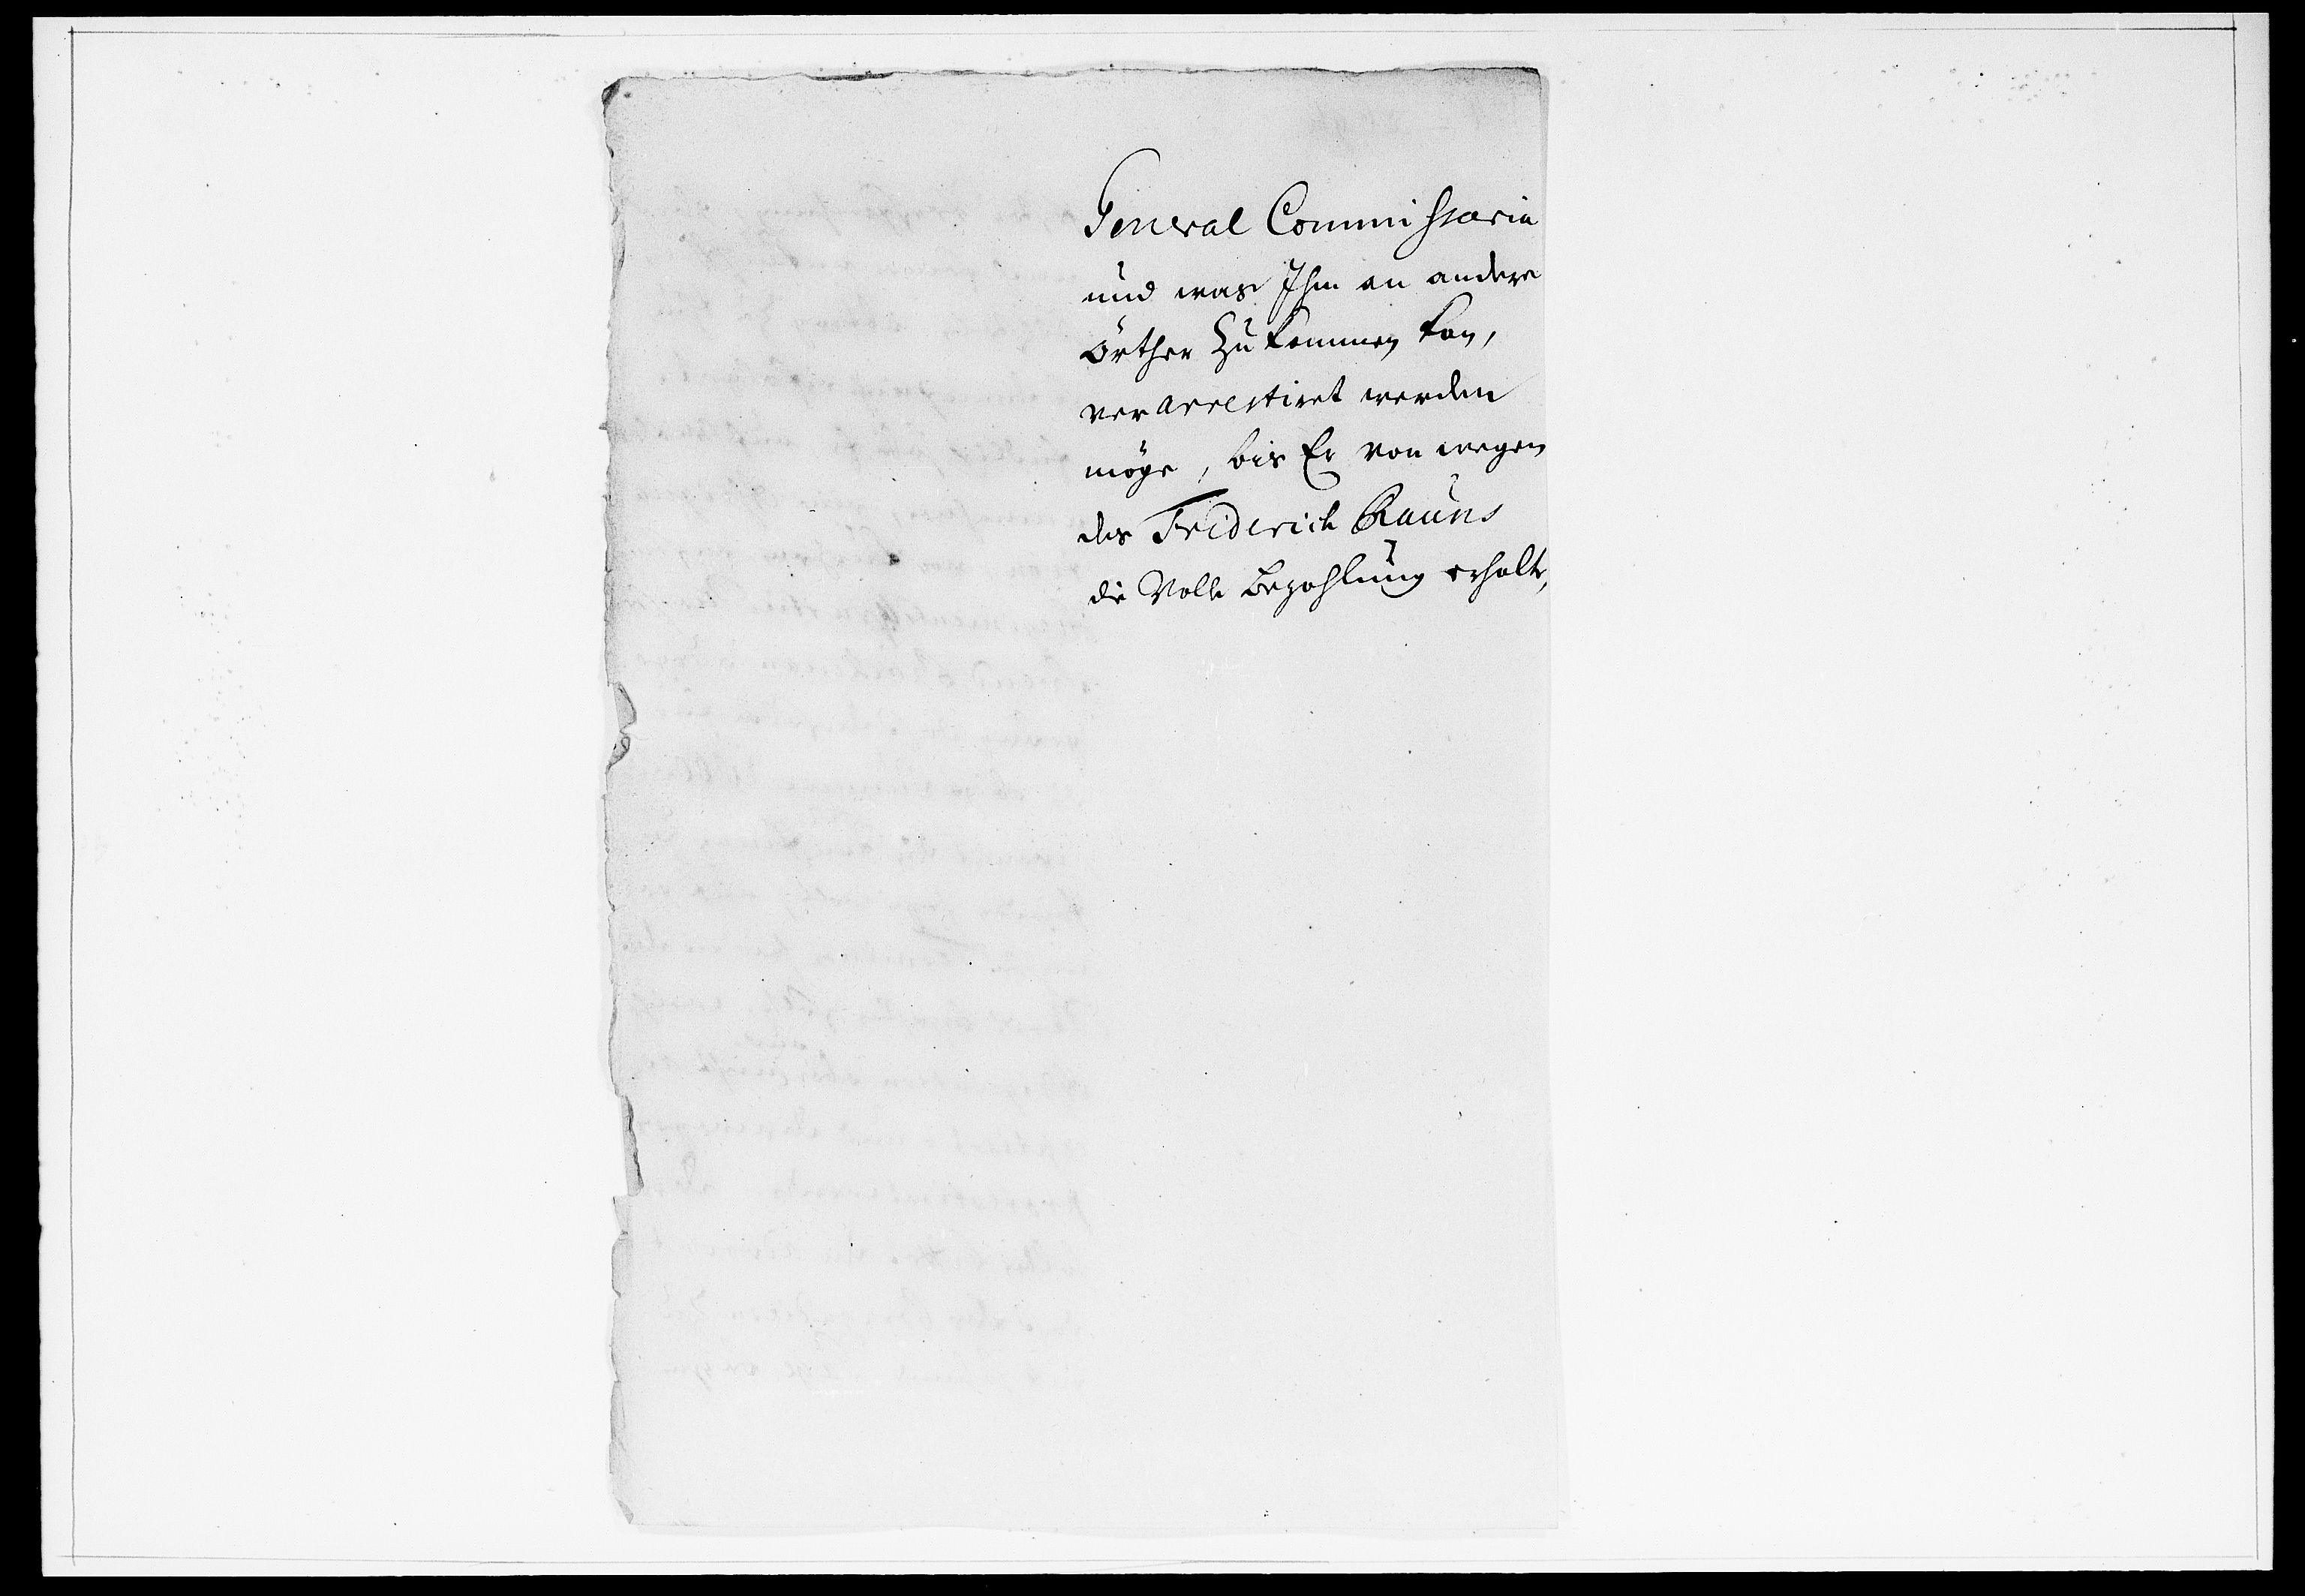 General Commissaria
und was Ihm an andere
örther zu kommen kan,
verarrestiret werden
möge, bis Er von wegen
des Friderich Rauns
die Volle bezahlung erhalte,